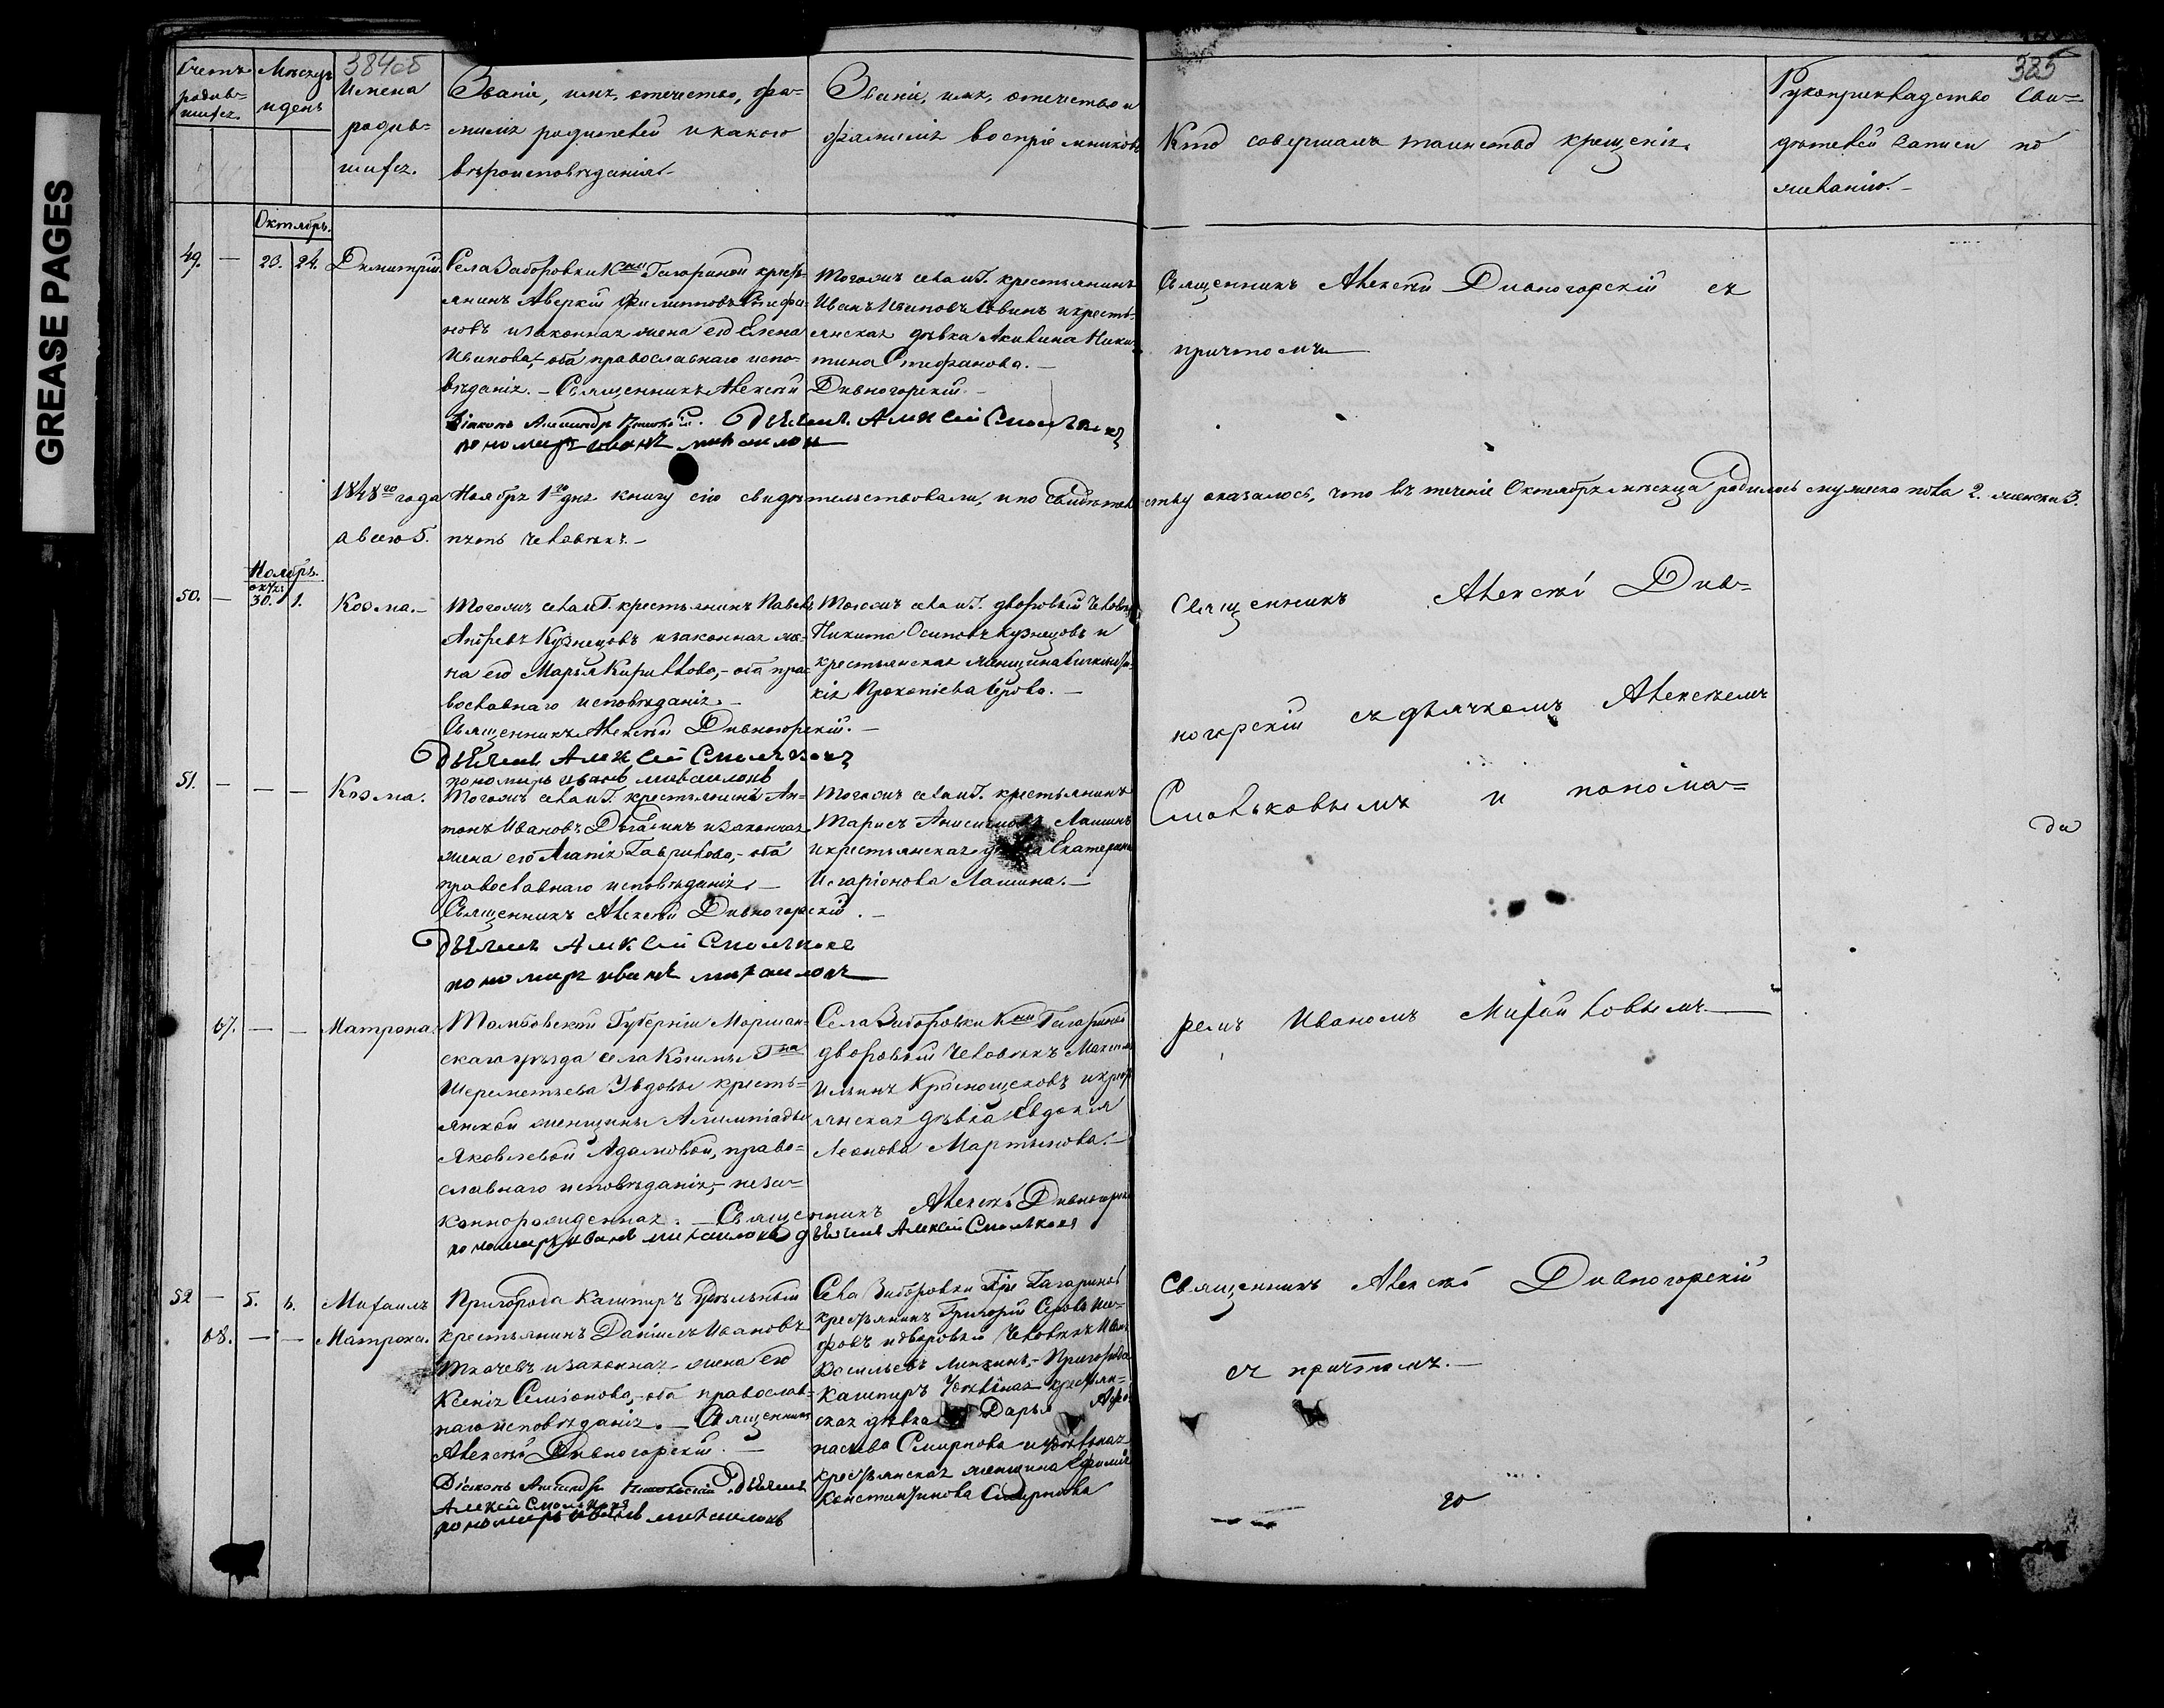 GREASE PAGES
384об
385
Счетъ родив-шихся.
Мѣсяцъ и день
Имена родив-шихся.
Званіе, имя, отечество, фа-
милія родителей и какого
вѣроисповѣданія.
Званіе, имя, отечество и
фамилія воспріемниковъ
Кто совершалъ таинство крещенія.
Рукоприкладство сви-
дѣтелей записи по
желанію.
Октябрь.
49. — 23. 24. Димитрій.
Села Заборовки К Гагариной кресть-
янинъ Аверкій Филиповъ Стефа-
новъ и законная жена его Елена
Иванова, оба православнаго испо-
вѣданія. — Священникъ Алексѣй Дивногорскій. —
Діаконъ Александръ дьячекъ Алексей Смольковъ
пономарь иванъ михаиловъ
Тогожъ села и Г. крестьянинъ
Иванъ Ивановъ Савинъ и кресть-
янская дѣвка Акилина Ники-
тина Стефанова. —
Священникъ Алексѣй Дивногорскій съ
причтомъ
1848го года Ноября 1го дня книгу сію свидѣтельствовали, и по свидѣтельству оказалось, что въ теченіе Октября мѣсяца родилось мужеска пола 2. женска 3.
а всего 5. пять человѣкъ. —
Ноябрь.
окт:
50. — 30. 1. Козма. —
Тогожъ села и Г. крестьянинъ Павелъ
Андреевъ Кузнецовъ и законная же-
на его Марья Кирилова, — оба пра-
вославнаго исповѣданія. —
Священникъ Алексѣй Дивногорскій. —
дьячекъ Алексей Смольковъ
пономарь иванъ михаиловъ
Тогожъ села и Г. дворовый человѣкъ
Никита Осиповъ Кузнецовъ и
крестьянская женщина
кія Прокопіева —
Священникъ Алексѣй Див-
ногорскій съ дьячкомъ Алексѣемъ
Смольковымъ и понома-
ремъ Иваномъ Михайловымъ
51. — — — Козма.
Тогожъ села и Г. крестьянинъ Ан-
тонъ Ивановъ и законная
жена его Агапія Гаврилова, — оба
православнаго исповѣданія. —
Священникъ Алексѣй Дивногорскій. —
дьячекъ Алексей Смольковъ
пономарь иванъ михаиловъ
Тогожъ села и Г. крестьянинъ
Тарасъ Анисимовъ Лашинъ
и крестьянская Екатерина
Иларіонова Лашина. —
67. — — Матрона.
Тамбовской Губерніи Моршан-
скаго уѣзда села Гна
Шереметьева вдовы кресть-
янской женщины Алимпіады
Яковлевой Адамовой, право-
славнаго исповѣданія, — неза-
коннорожденная. — Священникъ Алексѣй Дивногорскій
пономарь иванъ михаиловъ дьячекъ Алексей Смольковъ
Села Заборовки К Гагариной
дворовый человѣкъ Максимъ
Ильинъ Краснощековъ и кресть-
янская дѣвка Евдокія
Леонова Мартынова. —
52 — 5. 6. Михаилъ
68. — — Матрона.
Пригорода Кашпиръ Удѣльный
крестьянинъ Даніилъ Ивановъ
Ткачевъ и законная жена его
Ксенія Семіонова, — оба православ-
наго исповѣданія. — Священникъ
Алексѣй Дивногорскій. —
Діаконъ Александръ дьячекъ
Алексей Смольковъ
пономарь иванъ михаиловъ
Села Заборовки Гагариной
крестьянинъ Григорій
и дворовый человѣкъ Иванъ
Васильевъ — Пригорода
Кашпиръ Удѣльная крестьян-
ская дѣвка Дарья Афо-
насьева Смирнова и удѣльная
крестьянская женщина Евфимія
Константинова Смирнова
Священникъ Алексѣй Дивногорскій
съ причтомъ. —